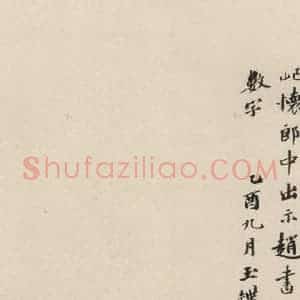 屺懷郎中出示趙書
數字 乙酉九月王
Shufaziliao.COM